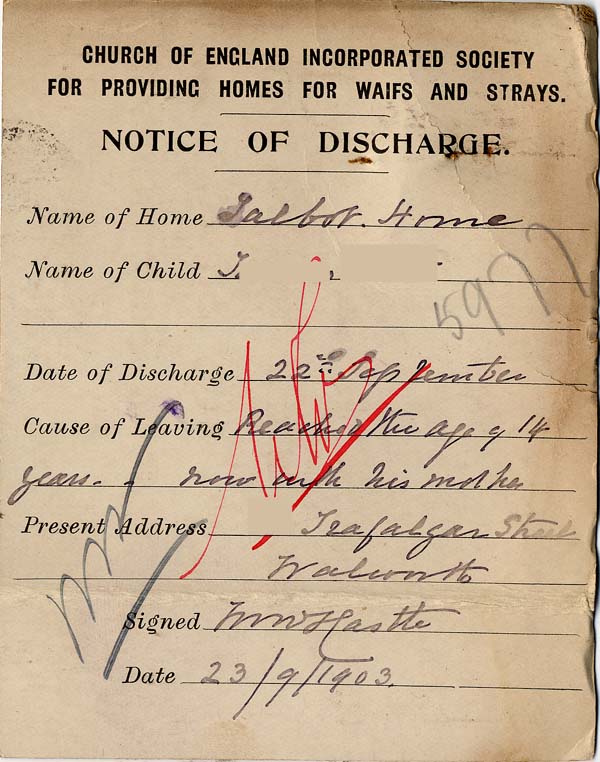 CHURCH OF ENGLAND INCORPORATED SOCIETY
FOR PROVIDING HOMES FOR WAIFS AND STRAYS.
NOTICE OF DISCHARGE.
Name of Home Talbot. Home
Name of Child T.
5977
Date of Discharge 22nd September
Cause of Leaving Reached the age of 14
years. now with his mother
Present Address Trafalgar Street
Walworth
Signed
Date 23/9/1903.